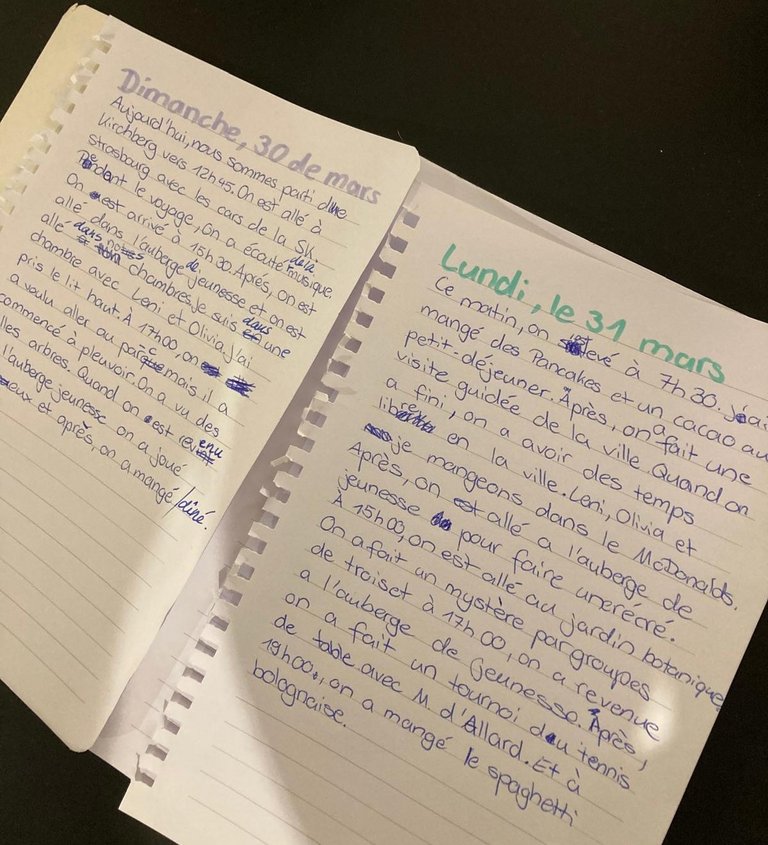 Dimanche, 30 de mars
Aujourd'hui, nous sommes parti de
Kirchberg vers 12h45. On est allé à
Strasbourg avec les cars de la SK.
Pendant le voyage, on a écouté de la musique.
On est arrivé à 15h30. Après, on est
allé dans l'auberge de jeunesse et on est
allé dans nos chambres. Je suis dans une
chambre avec Leni et Olivia. J'ai
pris le lit haut. À 17h00, on
a voulu aller au parc mais il a
commencé à pleuvoir. On a vu des
lles arbres. Quand on est revenu
l'auberge jeunesse on a joué
eux et après, on a mangé/dîné.
Lundi, le 31 mars
Ce matin, on est levé à 7h30. J'ai
mangé des Pancakes et un cacao au
petit-déjeuner. Après, on a fait une
visite guidée de la ville. Quand on
a fini, on a avoir des temps
libre en la ville. Leni, Olivia et
je mangeons dans le McDonalds.
Après, on est allé a l'auberge de
jeunesse pour faire une récré.
À 15h00, on est allé au jardin botanique
On a fait un mystère par groupes
de trois et à 17h00, on a revenue
a l'auberge de jeunesse. Après,
on a fait un tournoi du tennis
de table avec M d'Allard. Et à
19h00, on a mangé le spaghetti
bolognaise.